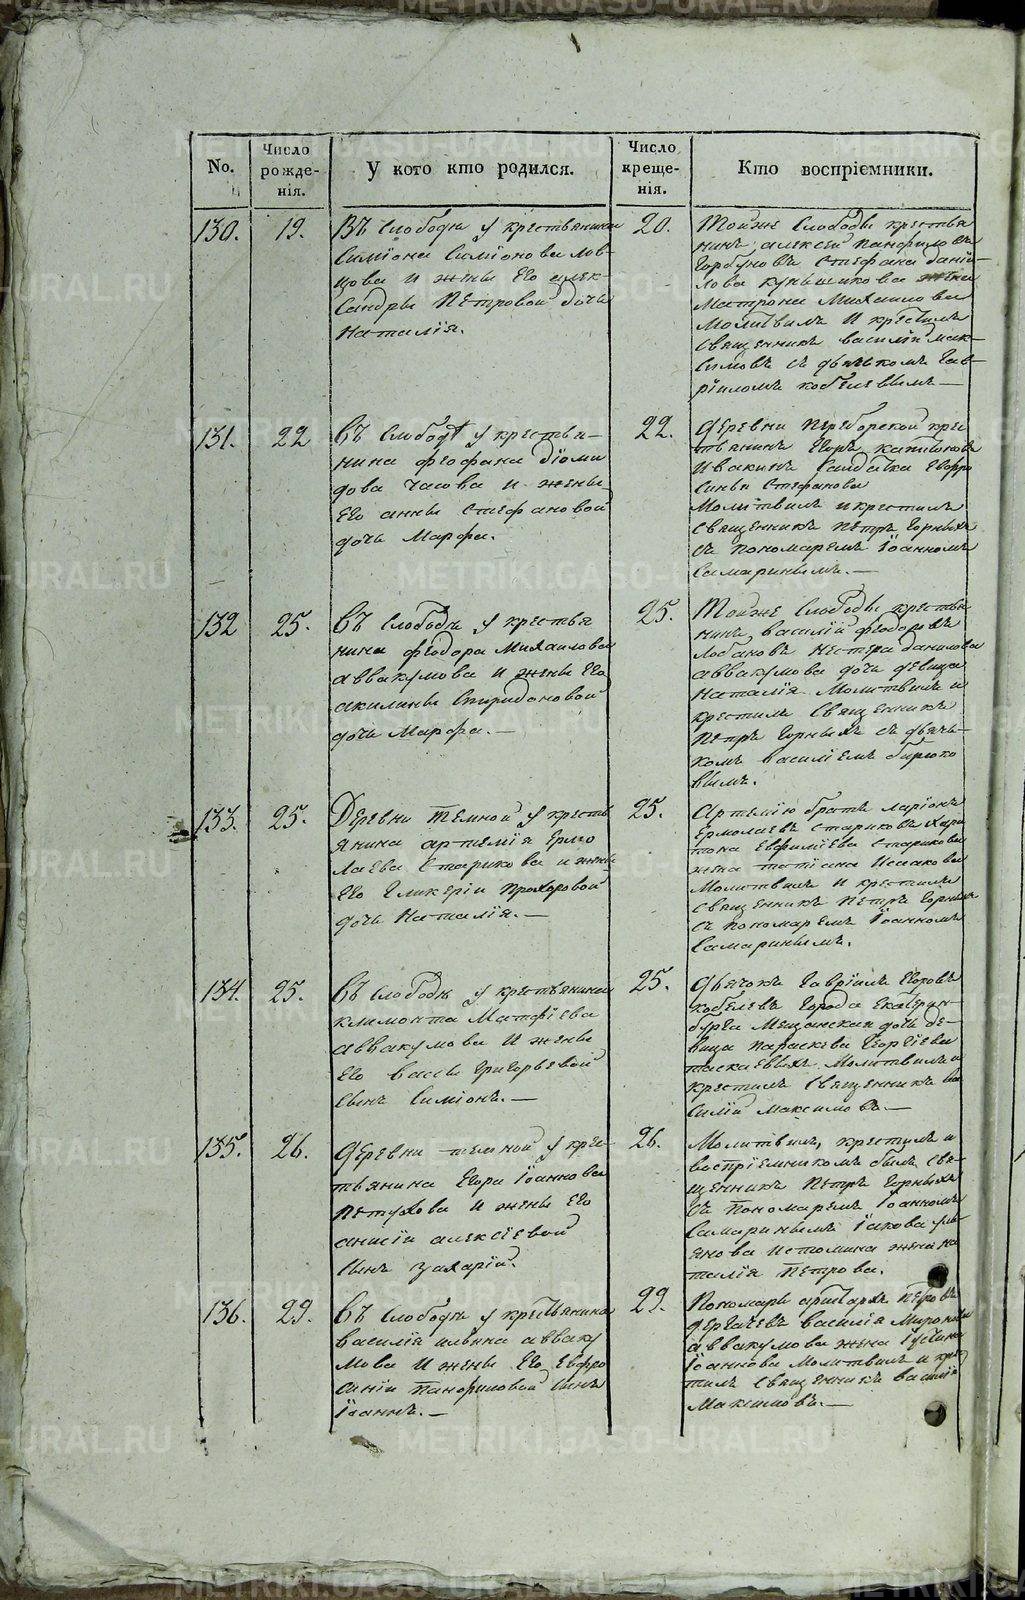 No.
Число рожде-нія.
У кого кто родился.
Число креще-нія.
Кто воспріемники.
130.
19.
Въ слободѣ у крестьянина
Симіона Симіонова
и жены его Алек-
сандры Петровой дочь
Наталія.
20.
Тойже слободы крестья
нинъ Алексей Панфиловъ
Горбуновъ Стефана Даніи-
лова Кунщикова жена
Матрона Михаилова
Молитвилъ и крестилъ
священникъ Василій Мак-
симовъ съ дьячкомъ Гав-
ріиломъ Кобелевымъ.—
131.
22
Въ слободѣ у крестья-
нина Феофана Діоми
дова Часова и жены
его Анны Стефановой
дочь Марфа.
22.
Деревни Переборской крес
тьянинъ Егоръ
Ивакинъ Салдатка Евфро
синья Стефанова
Молитвилъ и крестилъ
священникъ Петръ Горныхъ
съ пономаремъ Іоанномъ
Самаринымъ.—
132
25.
Въ слободѣ у крестья
нина Феодора Михаилова
Аввакумова и жены его
Акилины Спиридоновой
дочь Марфа.—
25.
Тойже слободы крестья
нинъ Василій Феодоровъ
Лобановъ Нестера Данилова
Аввакумова дочь девица
Наталія Молитвилъ и
крестилъ священникъ
Петръ Горныхъ съ дьяч-
комъ Василіемъ Бирюко
вымъ.
133.
25.
Деревни Темной у кресть
янина Артемія Ермо
лаева Старикова и жены
его Гликеріи Прохоровой
дочь Наталія.—
25.
Артемію братъ Ларіонъ
Ермолаевъ Стариковъ Хари
тона Евфиміева Старикова
жена Татіана Исаакова
Молитвилъ и крестилъ
священникъ Петръ Горныхъ
съ пономаремъ Іоанномъ
Самаринымъ.
134.
25.
Въ слободѣ у крестьянина
Климонта Матфіева
Аввакумова и жены
его Вассы Григорьевой
сынъ Симіонъ.—
25.
Дьячокъ Гавріилъ Егоровъ
Кобелевъ Города Екатерин-
бурга Мещанская дочь де-
вица Параскева Георгіева
Молитвилъ и
крестилъ священникъ Ва
силій Максимовъ.—
135.
26.
Деревни Темной у крес-
тьянина Егора Іоаннова
Петухова и жены его
Анисіи Алексіевой
сынъ Захарій.
26.
Молитвилъ, крестилъ и
воспріемникомъ былъ свя-
щенникъ Петръ Горныхъ
съ пономаремъ Іоанномъ
Самаринымъ Іакова Уль-
янова Истомина жена На
талія Петрова.
136.
29.
Въ слободѣ у крестьянина
Василія Ильина Авваку
мова и жены его Евфро
синіи Панфиловой сынъ
Іоаннъ.—
29.
Пономарь Аристархъ Петровъ
Дергачевъ Василія Миронова
Аввакумова жена Іустина
Іоаннова Молитвилъ и крес
тилъ священникъ Василій
Максимовъ.—
METRIKI.GASO-URAL.RU